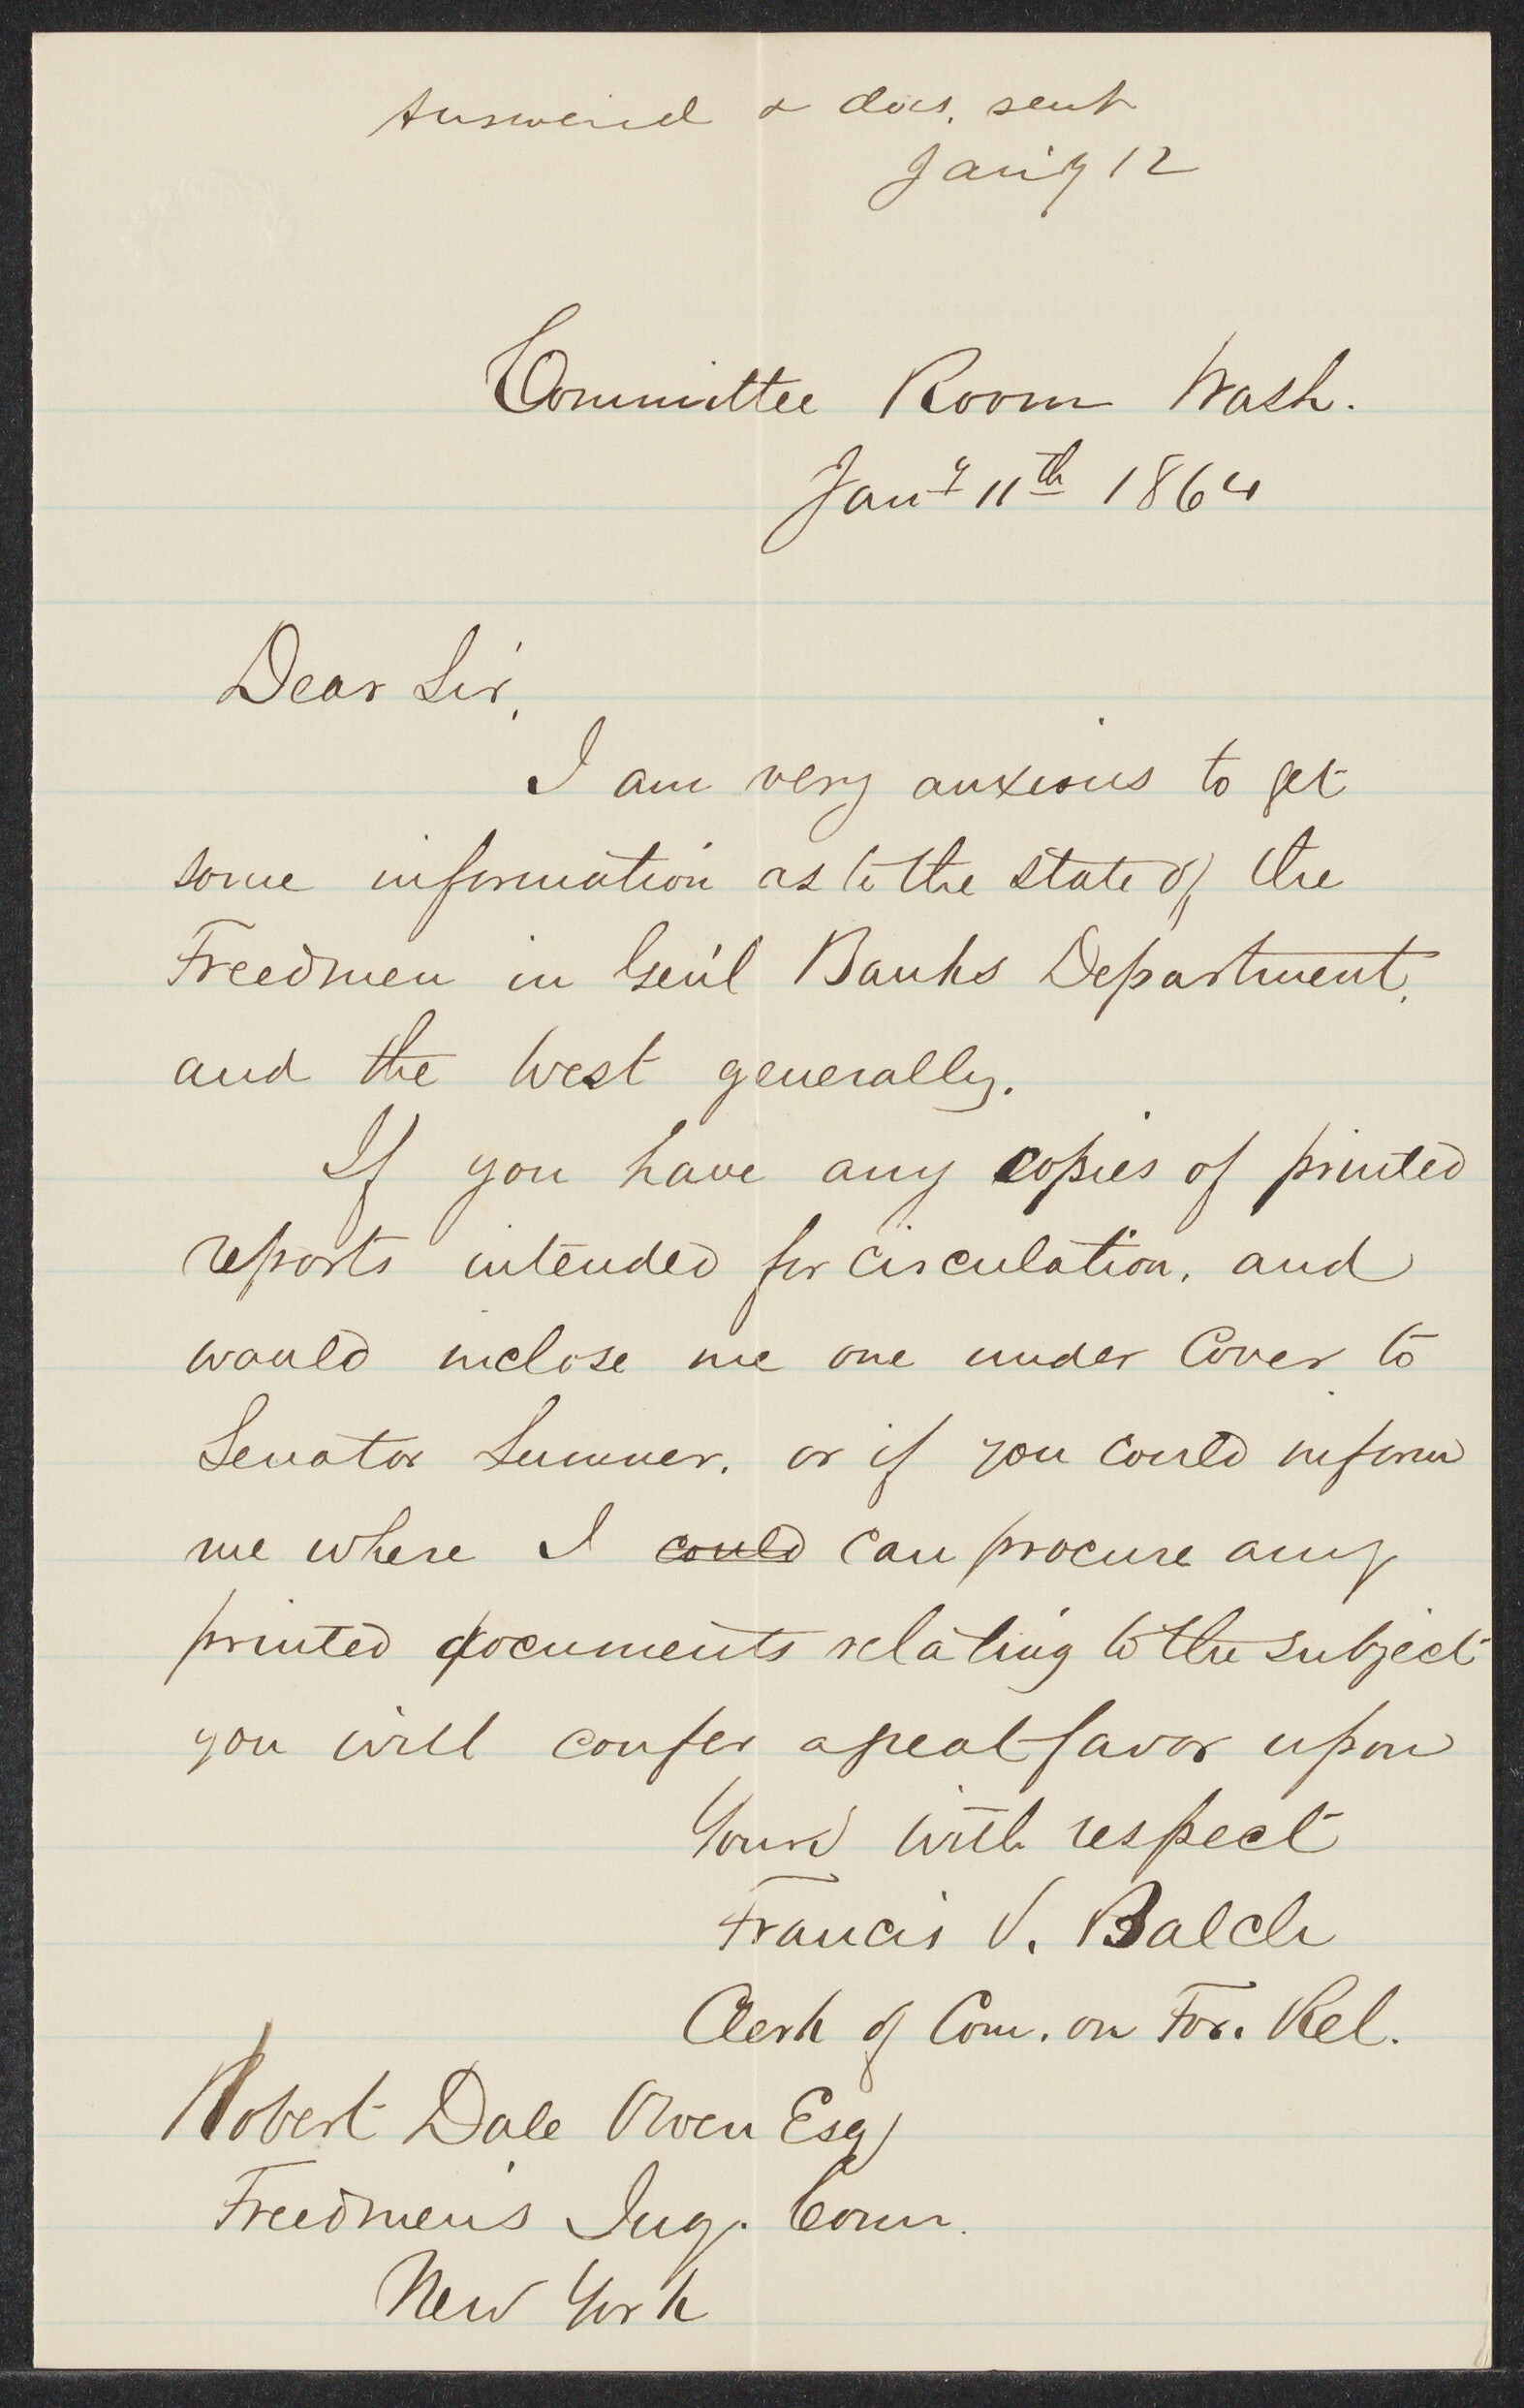 Answered & docs. sent
Jan'y 12
Committee Room Wash.
Jany 11th 1864
Dear Sir,
I am very anxious to get
some information as to the state of the
Freedmen in Gen'l Banks Department,
and the West generally.
If you have any copies of printed
reports intended for circulation, and
would inclose me one under cover to
Senator Sumner, or if you could inform
me where I could can procure any
printed documents relating to the subject
you will confer a great favor upon
Yours with respect
Francis V. Balch
Clerk of Com. on For. Rel.
Robert Dale Owen Esq
Freedmen's Inq. Com.
New York